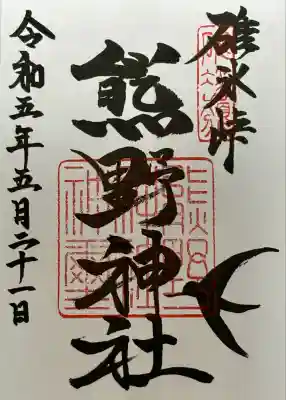 碓氷峠
熊野神社
令和五年五月二十一日